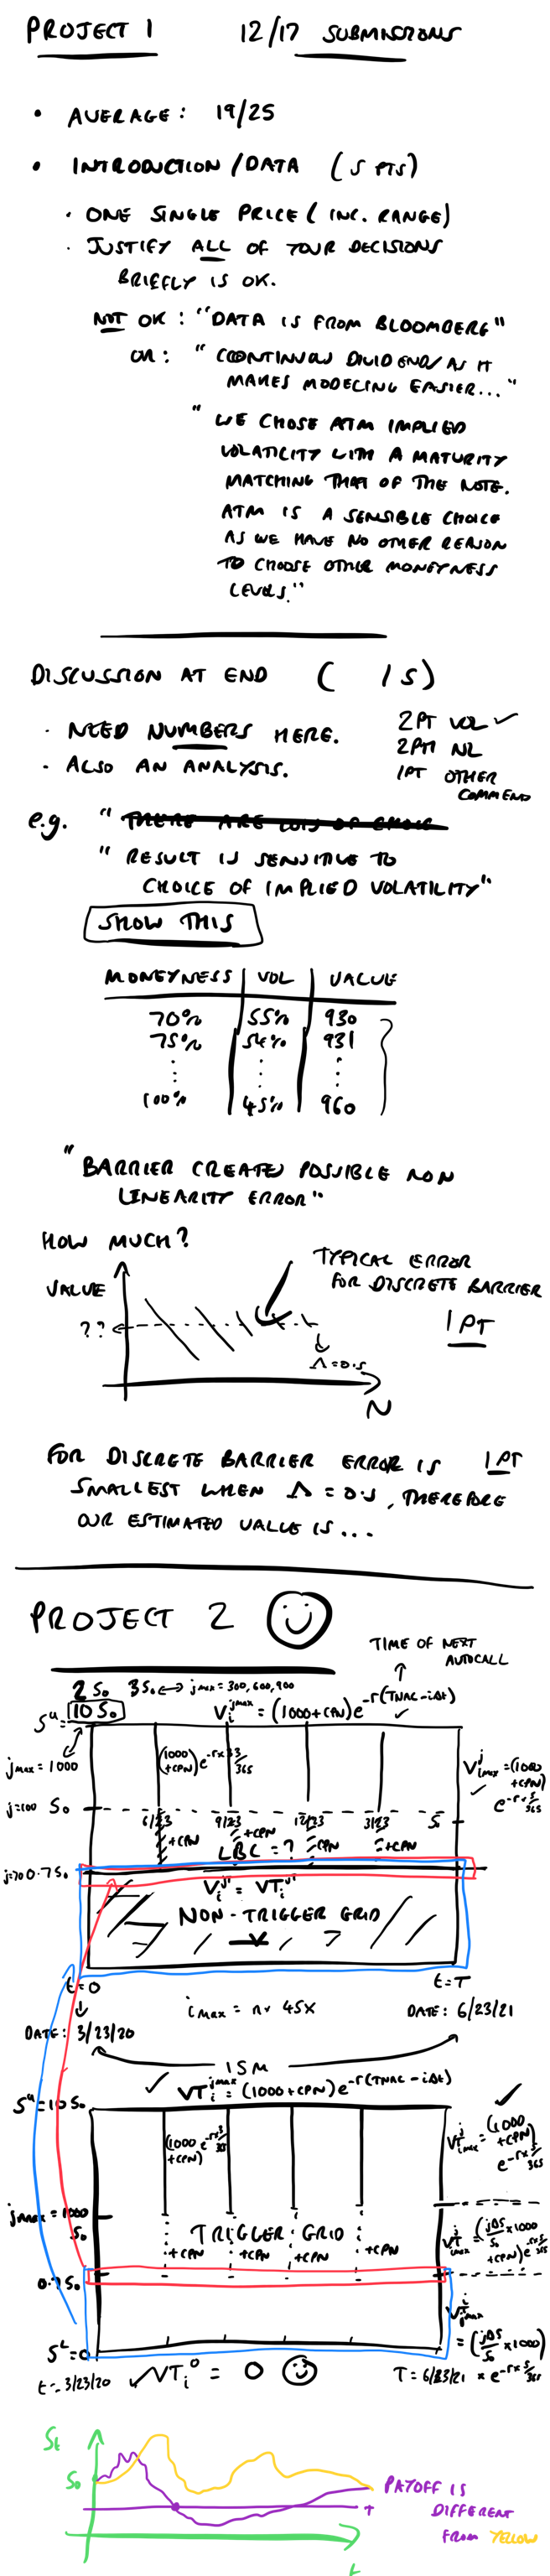 PROJECT 1 12/17 SUBMISSIONS
• AVERAGE: 19/25
• INTRODUCTION/DATA (5 PTS)
· ONE SINGLE PRICE (INC. RANGE)
· JUSTIFY ALL OF YOUR DECISIONS
BRIEFLY IS OK.
NOT OK: "DATA IS FROM BLOOMBERG"
OR: "CONTINUOUS DIVIDENDS AS IT
MAKES MODELING EASIER..."
"WE CHOSE ATM IMPLIED
VOLATILITY WITH A MATURITY
MATCHING THAT OF THE NOTE.
ATM IS A SENSIBLE CHOICE
AS WE HAVE NO OTHER REASON
TO CHOOSE OTHER MONEYNESS
LEVELS."
DISCUSSION AT END (15)
· NEED NUMBERS HERE.
· ALSO AN ANALYSIS.
2PT VOL ✓
2PT NL
1PT OTHER
COMMEND
e.g. "THERE ARE LOTS OF CHOICE
"RESULT IS SENSITIVE TO
CHOICE OF IMPLIED VOLATILITY"
SHOW THIS
MONEYNESS | VOL | VALUE
70% 55% 930
75% 54% 931
100% 45% 960
"BARRIER CREATES POSSIBLE NON
LINEARITY ERROR"
HOW MUCH?
TYPICAL ERROR
FOR DISCRETE BARRIER
VALUE
??
1 PT
Λ=0.5
N
FOR DISCRETE BARRIER ERROR IS 1PT
SMALLEST WHEN Λ = 0.5, THEREFORE
OUR ESTIMATED VALUE IS...
PROJECT 2
TIME OF NEXT
AUTOCALL
2S₀ 3S₀ ↔ jmax=300,600,900
Sᵘ=10S₀
V_i^jmax = (1000+CPN)e^-r(TNAC-iΔt)
jmax=1000
(1000+CPN)e^-r×3/365
V_imax^j = (1000+CPN)e^-r×5/365
j=100 S₀
6/23 9/23 12/23 3/23 S₀
+CPN +CPN CPN +CPN
LBC = ?
j=70 0.7S₀
V_i^j = VT_i^j
NON-TRIGGER GRID
V
t=0
t=T
DATE: 3/23/20
imax = n× 45X
DATE: 6/23/21
15M
VT_i^jmax = (1000+CPN)e^-r(TNAC-iΔt)
Sᵘ=10S₀
(1000+CPN)e^-r×3/365
VT_imax^j = (1000+CPN)e^-r×5/365
jmax=1000
S₀
TRIGGER GRID
+CPN +CPN +CPN +CPN
VT_imax^j = (jΔS/S₀×1000+CPN)e^-r×5/365
0.7S₀
VT_imax^j = (jΔS/S₀×1000)×e^-r×5/365
Sᴸ=0
t=3/23/20 ✓VT_i^0 = 0 T=6/23/21
St
S₀
PAYOFF IS
DIFFERENT
FROM YELLOW
t